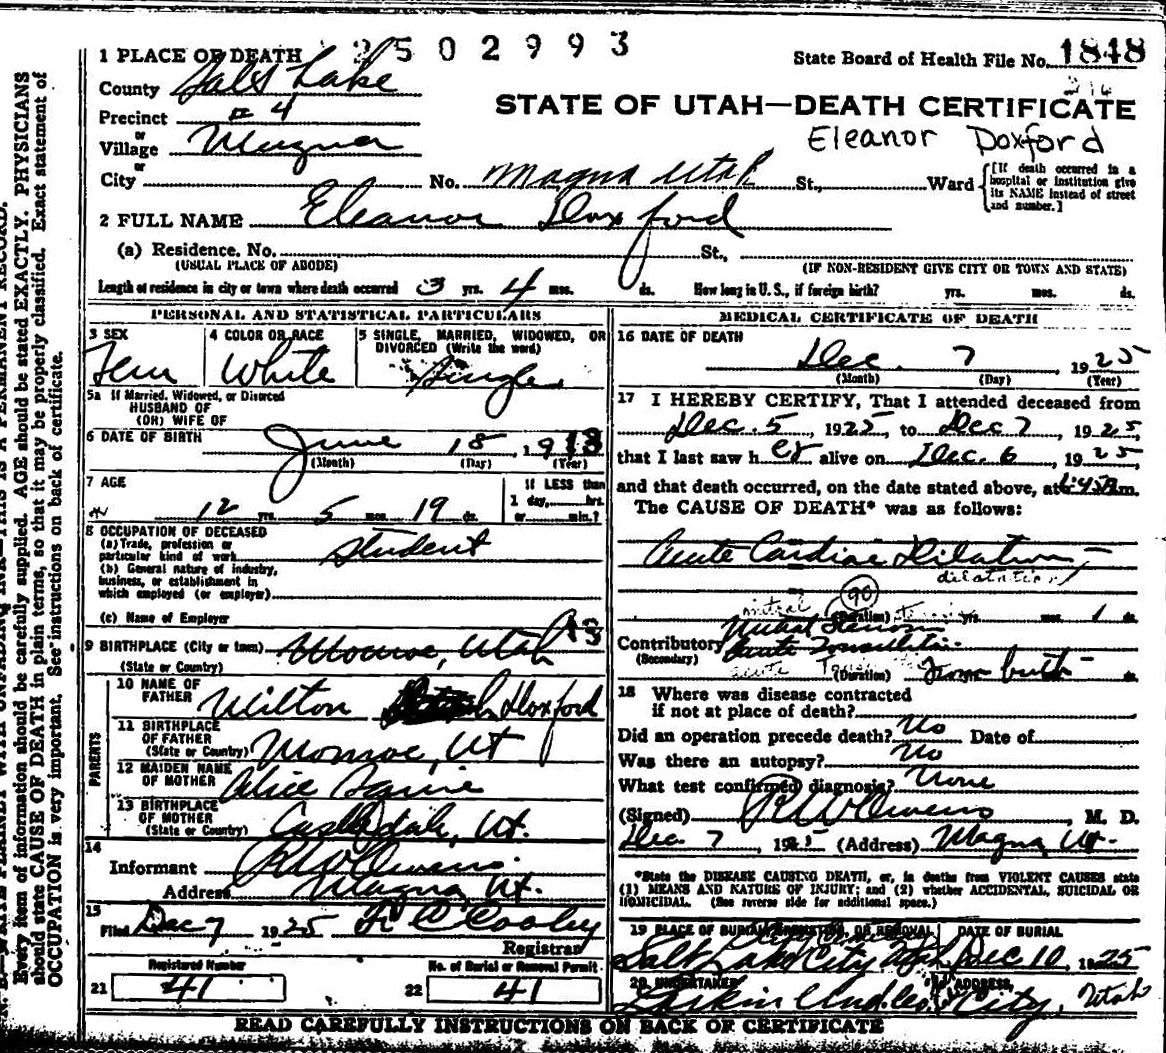 2502993
1 PLACE OF DEATH
State Board of Health File No. 1848
County Salt Lake
216
STATE OF UTAH—DEATH CERTIFICATE
Precinct # 4
or
Village Magna
Eleanor Doxford
or
City No. Magna Utah St., Ward [If death occurred in a hospital or institution give its NAME instead of street and number.]
2 FULL NAME Eleanor Doxford
(a) Residence. No. St.,
(USUAL PLACE OF ABODE) (IF NON-RESIDENT GIVE CITY OR TOWN AND STATE)
Length of residence in city or town where death occurred 3 yrs. 4 mos. ds. How long in U. S., if foreign birth? yrs. mos. ds.
PERSONAL AND STATISTICAL PARTICULARS
3 SEX 4 COLOR OR RACE 5 SINGLE, MARRIED, WIDOWED, OR
DIVORCED (Write the word)
Fem White Single
5a If Married, Widowed, or Divorced
HUSBAND OF
(OR) WIFE OF
6 DATE OF BIRTH June 18, 1913
(Month) (Day) (Year)
7 AGE If LESS than
1 day, hrs.
12 yrs. 5 mos. 19 ds. or min.?
8 OCCUPATION OF DECEASED
(a) Trade, profession or
particular kind of work Student
(b) General nature of industry,
business, or establishment in
which employed (or employer)
(c) Name of Employer
13
9 BIRTHPLACE (City or town) Monroe, Utah
(State or Country)
PARENTS
10 NAME OF
FATHER Wilton Doxford
11 BIRTHPLACE
OF FATHER
(State or Country) Monroe, Ut
12 MAIDEN NAME
OF MOTHER Alice
13 BIRTHPLACE
OF MOTHER
(State or Country) Castledale, Ut.
14
Informant R W Owens
Address Magna Ut.
15
Filed Dec 7 1925
Registrar
Registered Number No. of Burial or Removal Permit
21 41 22 41
MEDICAL CERTIFICATE OF DEATH
16 DATE OF DEATH
Dec. 7 1925
(Month) (Day) (Year)
17 I HEREBY CERTIFY, That I attended deceased from
Dec. 5, 1925, to Dec 7, 1925,
that I last saw her alive on Dec. 6, 1925,
and that death occurred, on the date stated above, at 6:45 A m.
The CAUSE OF DEATH* was as follows:
Acute Cardiac Dilation
dilatation
90
mitral (Duration) yrs. mos. 1 ds.
Contributory Mitral Stenosis
(Secondary) Acute Tonsillitis
acute (Duration) from birth ds.
18 Where was disease contracted
if not at place of death?
Did an operation precede death? No Date of
Was there an autopsy? No
What test confirmed diagnosis? None
(Signed) R W Owens, M. D.
Dec 7, 1925 (Address) Magna Ut.
*State the DISEASE CAUSING DEATH, or, in deaths from VIOLENT CAUSES state
(1) MEANS AND NATURE OF INJURY; and (2) whether ACCIDENTAL, SUICIDAL OR
HOMICIDAL. (See reverse side for additional space.)
19 PLACE OF BURIAL, CREMATION, OR REMOVAL DATE OF BURIAL
Salt Lake City Utah Dec 10, 1925
20 UNDERTAKER ADDRESS,
Larkin Und. Co. City, Utah
READ CAREFULLY INSTRUCTIONS ON BACK OF CERTIFICATE
N. B.—WRITE PLAINLY WITH UNFADING INK—THIS IS A PERMANENT RECORD.
Every item of information should be carefully supplied. AGE should be stated EXACTLY. PHYSICIANS
should state CAUSE OF DEATH in plain terms, so that it may be properly classified. Exact statement of
OCCUPATION is very important. See instructions on back of certificate.